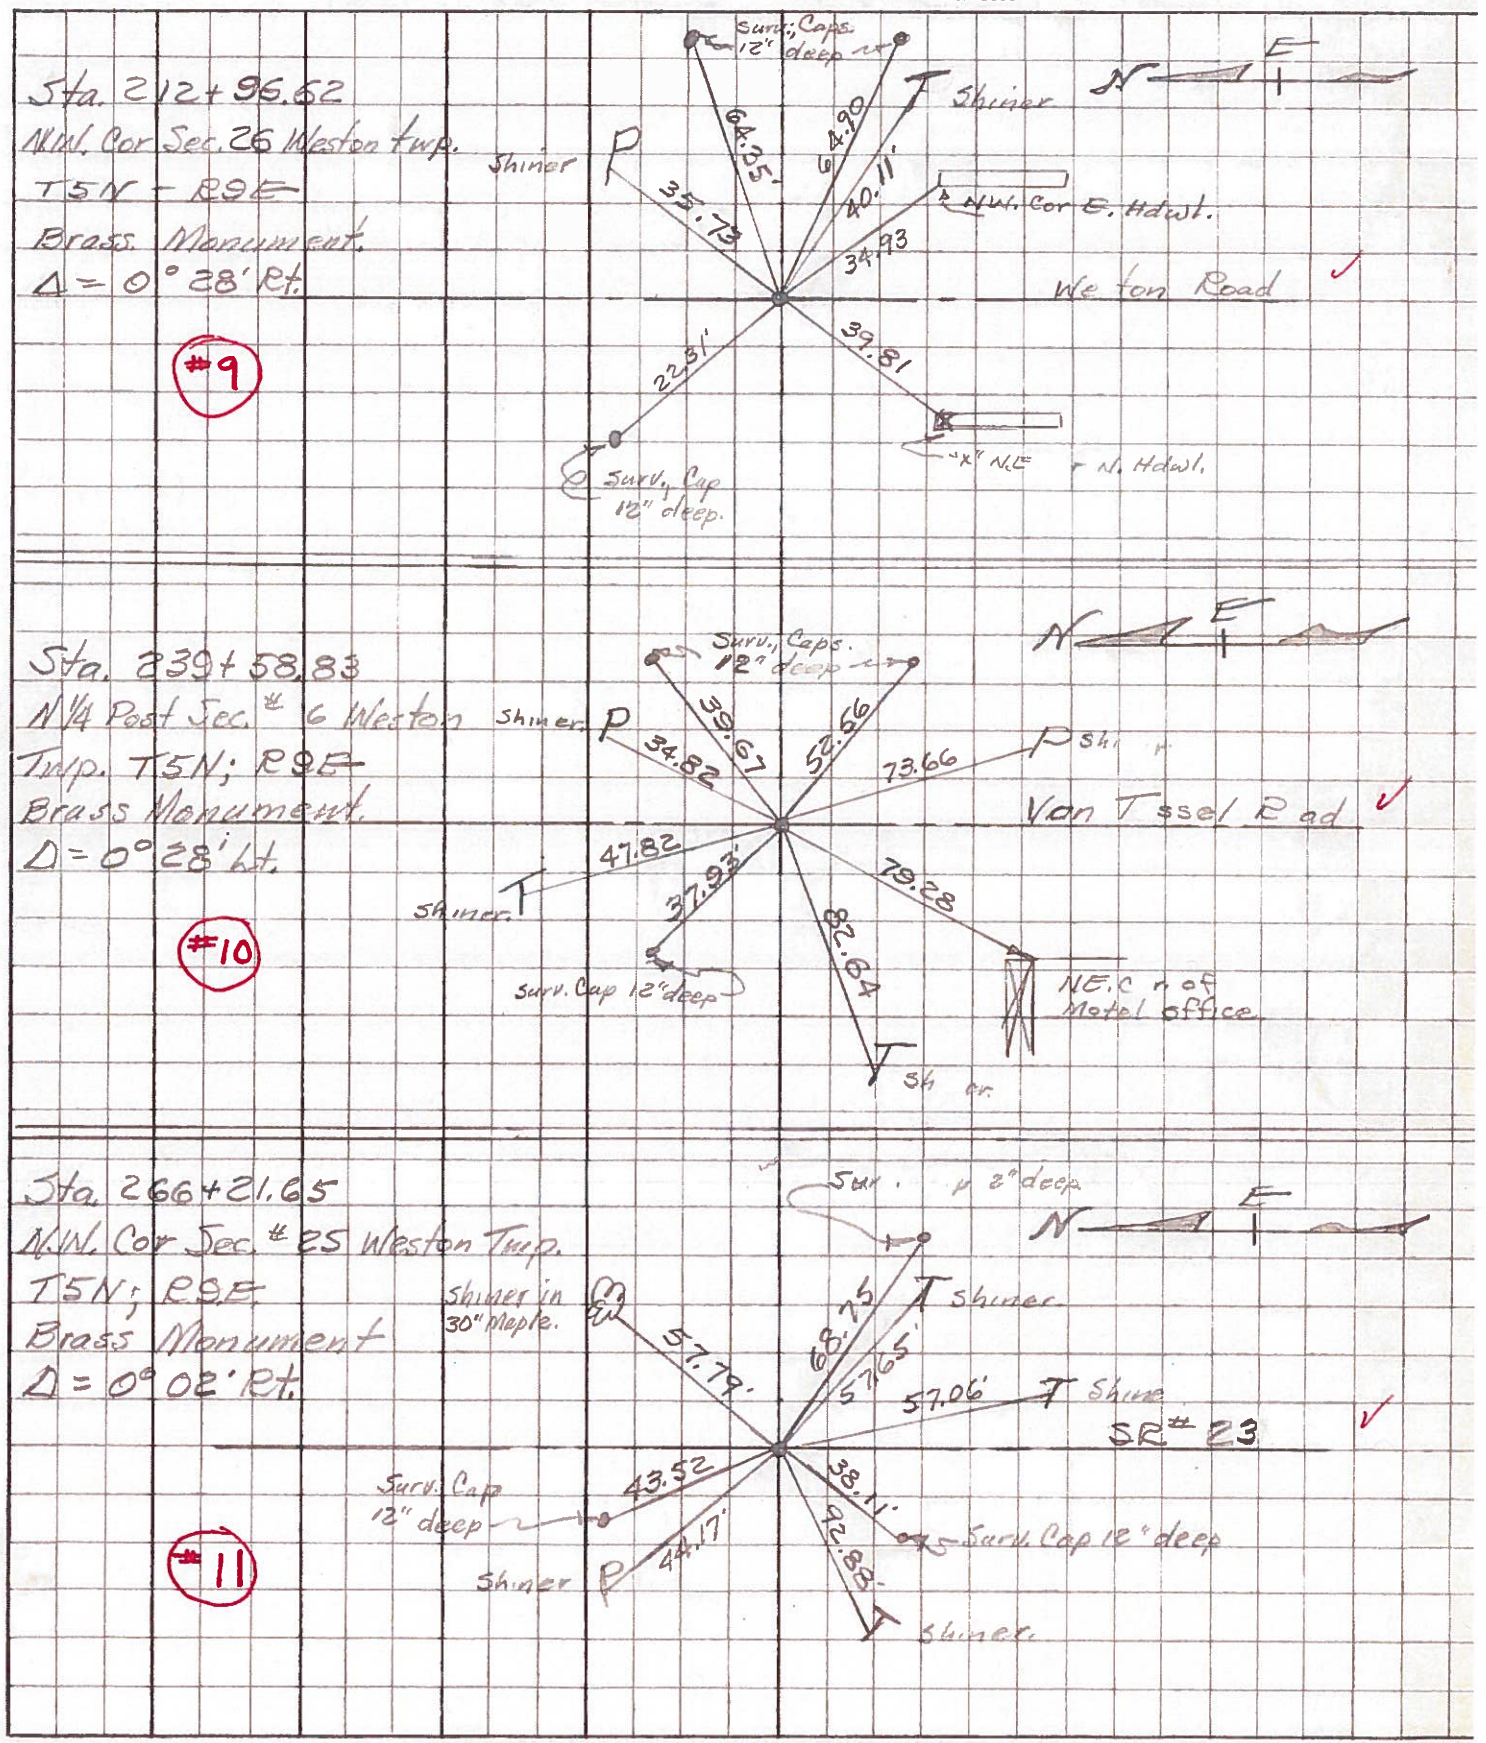 Sta. 212+96.62
N.W. Cor Sec. 26 Weston twp.
T5N - R9E
Brass Monument.
Δ = 0° 28' Rt.
#9
Surv., Caps.
12" deep
64.35'
64.90
T Shiner
N E
Shiner P
35.73
40.11'
N.W. Cor E. Hdwl.
34.93
We ton Road ✓
22.31'
39.81
"X" N.E r N. Hdwl.
Surv., Cap
12" deep.
Sta. 239+58.83
N 1/4 Post Sec. # 6 Weston
Twp. T5N; R9E
Brass Monument.
Δ = 0° 28' Lt.
#10
Surv., Caps.
12" deep
N E
Shiner. P
34.82
39.67
52.56
73.66
P Sh r
Van T ssel R ad ✓
47.82
37.93'
79.28
82.64
Shiner. T
Surv. Cap 12" deep
NE. C r. of
Motel office
T Sh er.
Sta. 266+21.65
N.W. Cor Sec. # 25 Weston Twp.
T5N; R9E
Brass Monument
Δ = 0° 02' Rt.
#11
Sur . p 2" deep
N E
Shiner in
30" Maple.
57.79'
68.75
57.65'
T Shiner.
57.06'
T Shine
SR # 23 ✓
Surv. Cap
12" deep
43.52
44.17'
38.11'
92.88'
Surv. Cap 12" deep
Shiner P
T Shiner.